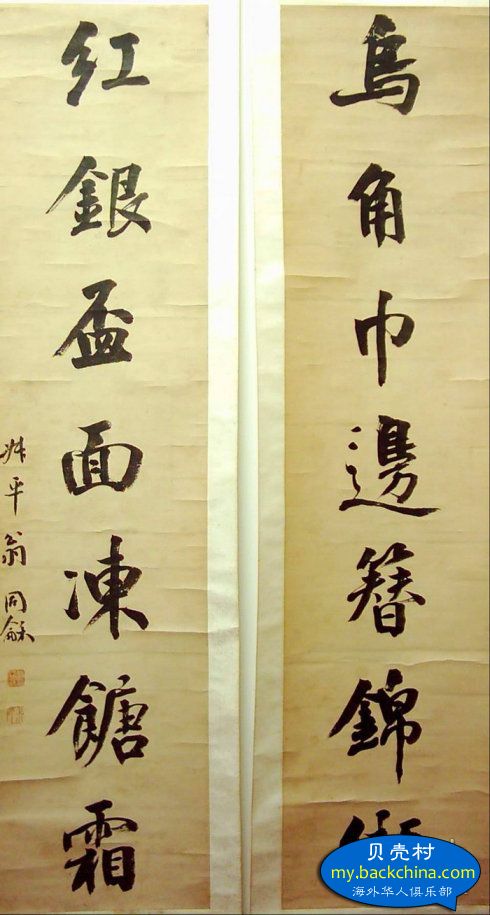 烏角巾邊簪錦
紅銀盃面凍餹霜
叔平翁同龢
贝壳村
my.backchina.com
海外华人俱乐部